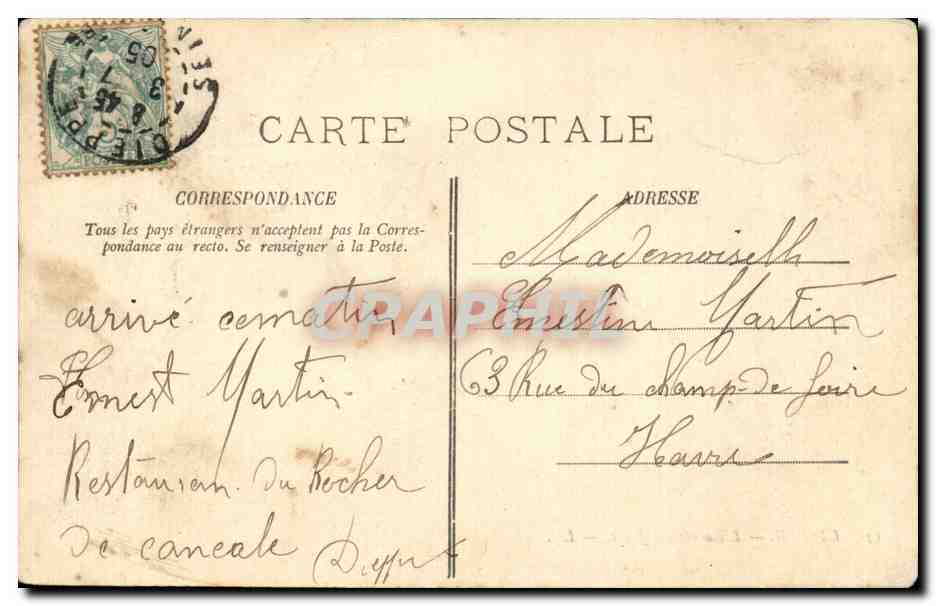 DIEPPE
8 45
7
3
05
SEINE
CARTE POSTALE
CORRESPONDANCE
Tous les pays étrangers n'acceptent pas la Corres-
pondance au recto. Se renseigner à la Poste.
arrivé cematin
Ernest Martin
Restauran. du Rocher
de cancale Dieppe
ADRESSE
Mademoiselle
Ernestine Martin
63 Rue du champ-de foire
Havre
CPAPHIL